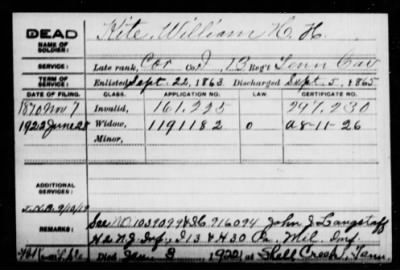 DEAD
NAME OF SOLDIER:
Kite, William H. H.
SERVICE:
Late rank, Cor Co. I, 13 Reg't Tenn Cav
TERM OF SERVICE:
Enlisted Sept. 22, 1863 Discharged Sept. 5, 1865
DATE OF FILING. CLASS. APPLICATION NO. LAW. CERTIFICATE NO.
1870 Nov 7 Invalid, 161.225 247.230
1922 June 28 Widow, 1191182 0 A8-11-26
Minor,
ADDITIONAL SERVICES:
REMARKS:
See No. 1039099 & I.C. 916094 John J Langstaff
H 2 N.J. Inf., I 13 & H 30 Pa. Mil. Inf.
Died Jan. 8, 1922, at Shell Creek, Tenn.